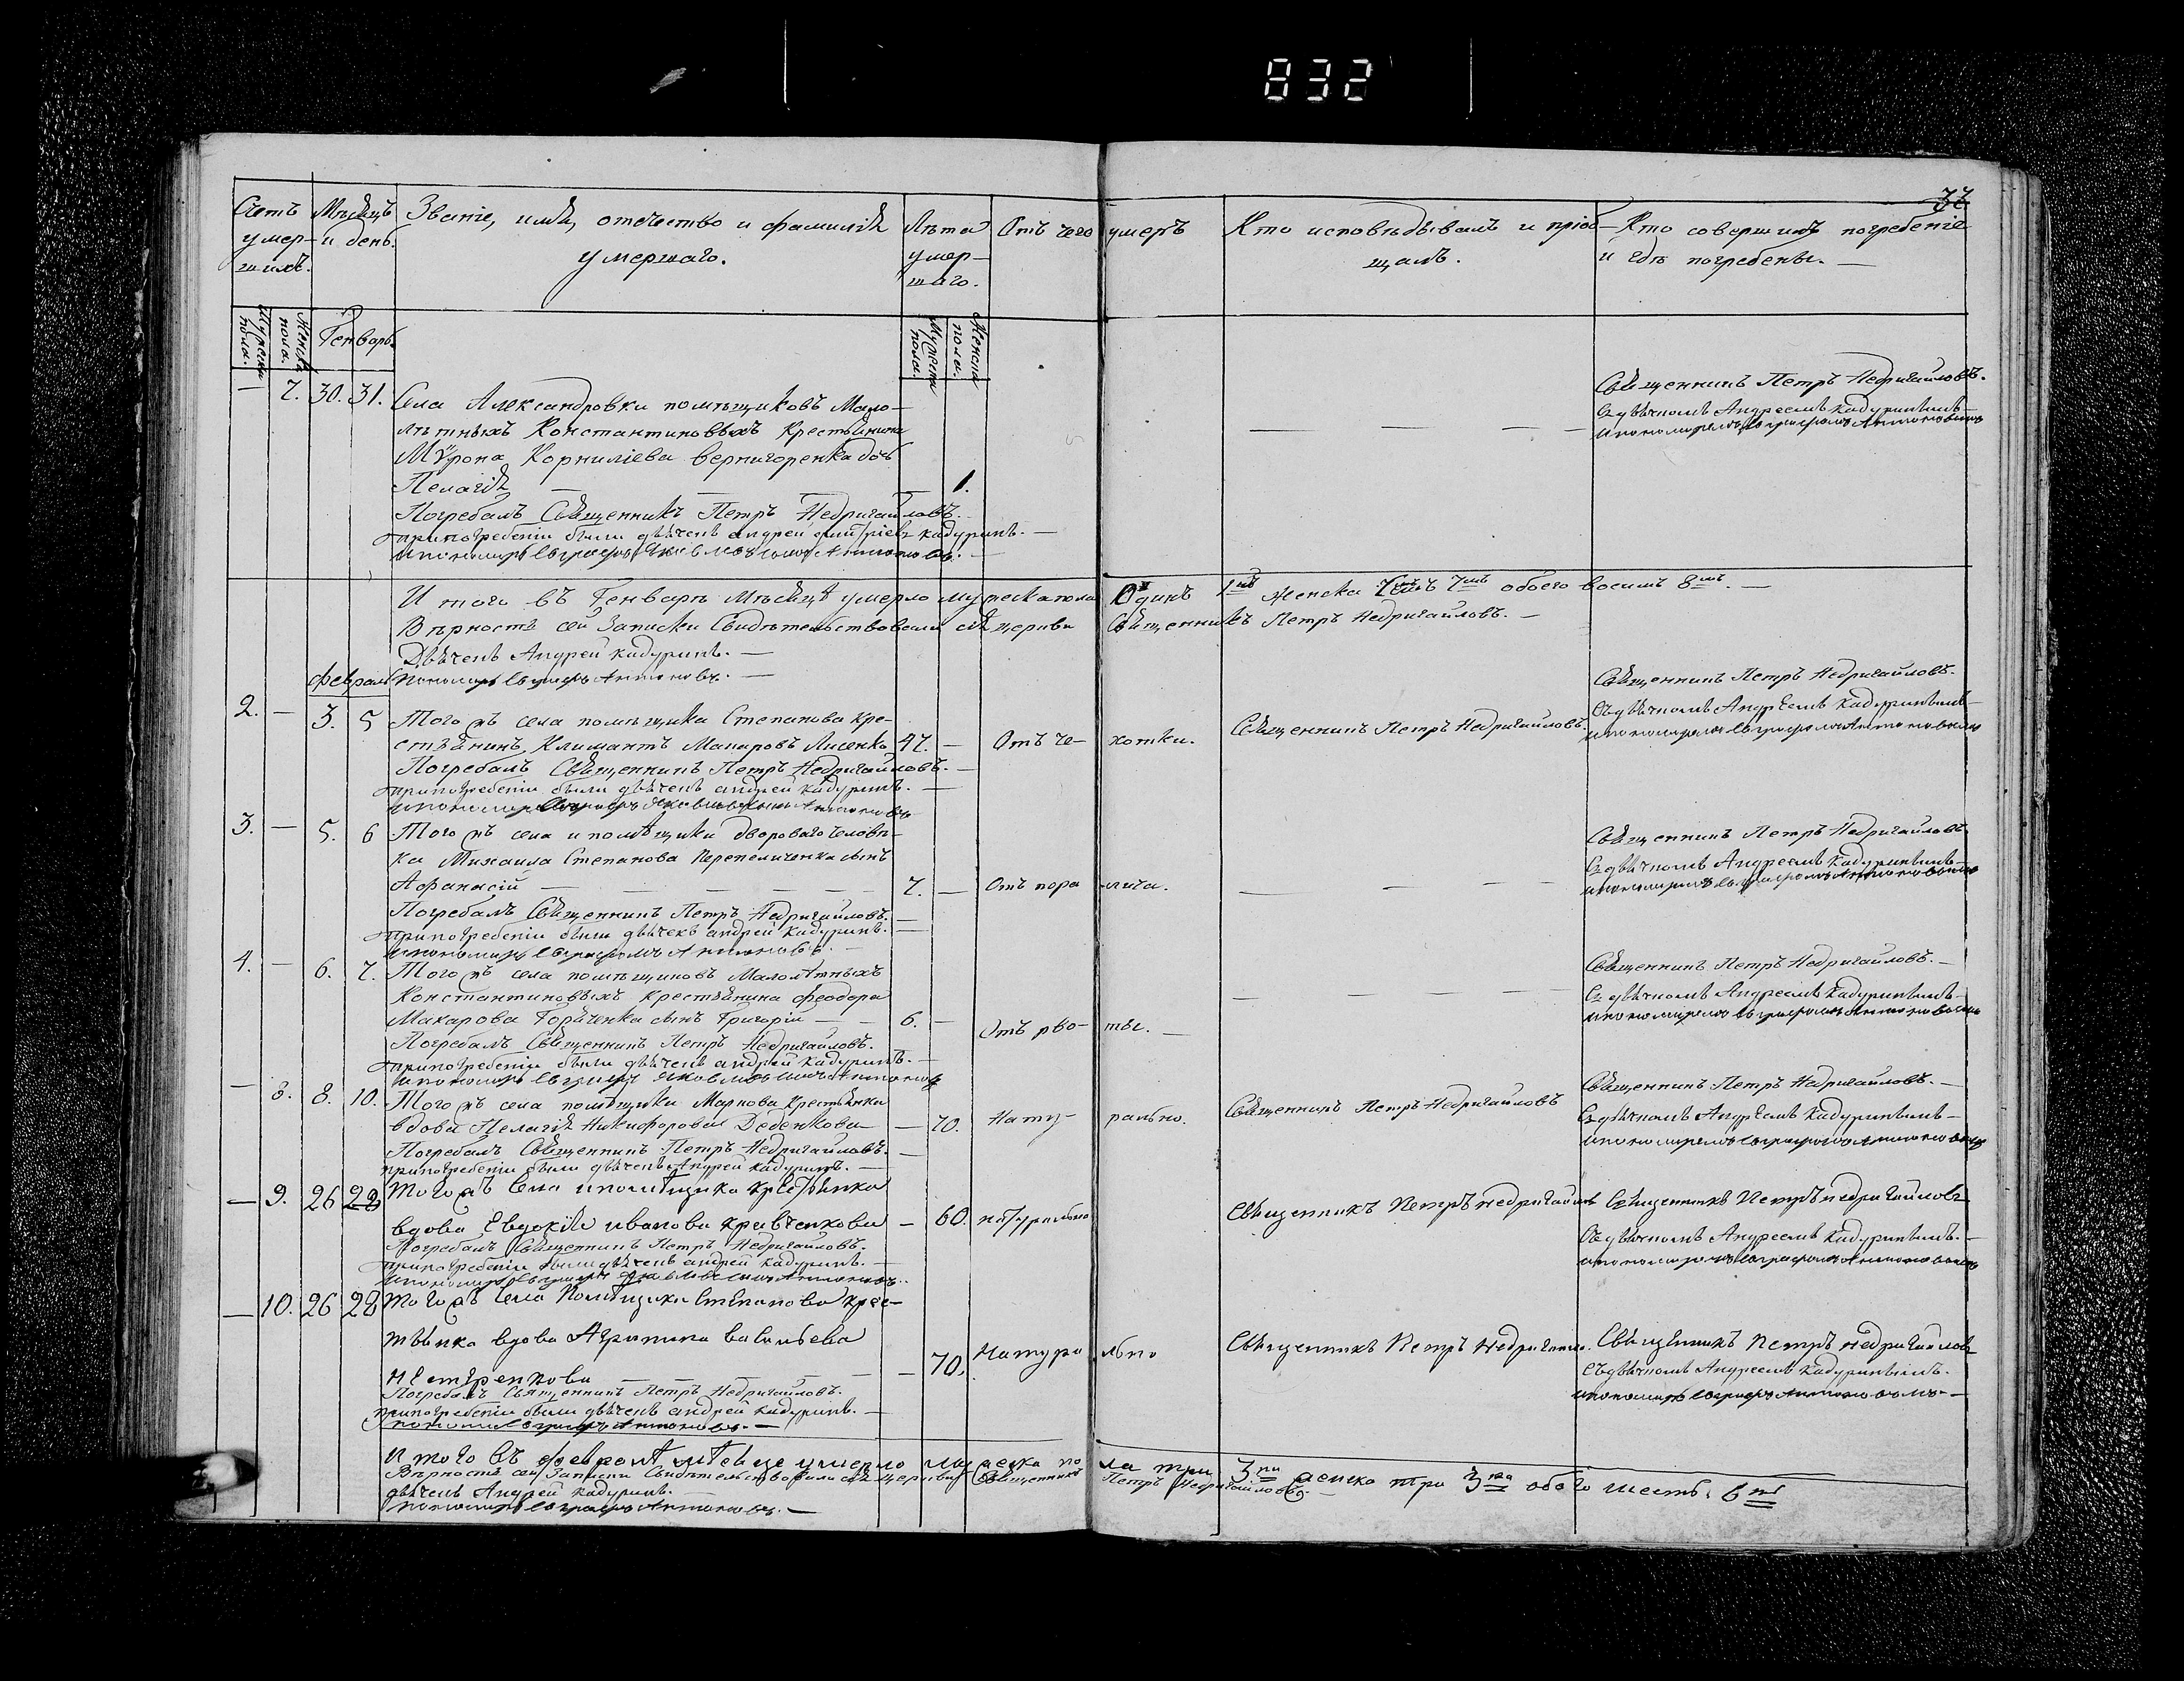 832
32
Счетъ умер-шихъ.
Мѣсяцъ и день.
Званіе, имя, отчество и фамилія умершаго.
Лѣта умер-шаго.
Отъ чего умеръ
Кто исповѣдывалъ и пріоб-щалъ.
Кто совершилъ погребеніе и гдѣ погребены. —
Мужеска пола.
Женска пола.
Генварь.
Мужеска пола.
Женска пола.
— 7. 30. 31. Села Александровки помѣщиковъ Мало-
лѣтныхъ Константиновыхъ крестьянина
Мѵрона Корниліева Вернигоренка дочь
Пелагія — — — — 1.
Погребалъ Священникъ Петръ Недригайловъ.
при погребеніи были дьячекъ Андрей Дмитріевъ Кадуринъ. —
и пономарь Антоновъ. —
— — — —
Священникъ Петръ Недригайловъ.
Съ дьячкомъ Андреемъ Кадуринымъ —
и пономаремъ Антоновымъ
И того въ Генварѣ Мѣсяцѣ умерло мужеска пола Одинъ 1нъ женска 7мь обоего восемь 8мь. —
Вѣрность сей Записки Свидѣтельствовали сея церкви Священникъ Петръ Недригайловъ. —
Дьячекъ Андрей Кадуринъ. —
Пономарь Антоновъ. —
Февраль
2. — 3. 5 Того жъ села помѣщика Степанова кре-
стьянинъ Климантъ Макаровъ Лисенко 47. — Отъ че- хотки.
Священникъ Петръ Недригайловъ.
Погребалъ Священникъ Петръ Недригайловъ. —
при погребеніи были дьячекъ Андрей Кадуринъ. —
и пономарь Антоновъ
Священникъ Петръ Недригайловъ.
Съ дьячкомъ Андреемъ Кадуринымъ —
и пономаремъ Антоновымъ
3. — 5. 6 Того жъ села и помѣщика двороваго человѣ-
ка Михаила Степанова Перепеличенка сынъ
Афанасій — — — — — 7. — Отъ пора лича.
— — — —
Погребалъ Священникъ Петръ Недригайловъ. —
при погребеніи были дьячекъ Андрей Кадуринъ. —
и пономарь Антоновъ. —
Священникъ Петръ Недригайловъ.
Съ дьячкомъ Андреемъ Кадуринымъ —
и пономаремъ Антоновымъ
4. — 6. 7. Того жъ села помѣщиковъ Малолѣтныхъ
Константиновыхъ крестьянина Феодора
Макарова Горяченка сынъ Григорій — — 6. — Отъ рво- ты. —
— — — —
Погребалъ Священникъ Петръ Недригайловъ.
при погребеніи были дьячекъ Андрей Кадуринъ. —
и пономарь Антоновъ
Священникъ Петръ Недригайловъ. —
Съ дьячкомъ Андреемъ Кадуринымъ —
и пономаремъ Антоновымъ
— 8. 8. 10. Того жъ села помѣщика Маркова крестьянка
вдова Пелагія Никифорова Деденкова — 70. Нату- рально.
Священникъ Петръ Недригайловъ
Погребалъ Священникъ Петръ Недригайловъ. —
при погребеніи были дьячекъ Андрей Кадуринъ. —
Священникъ Петръ Недригайловъ. —
Съ дьячкомъ Андреемъ Кадуринымъ —
и пономаремъ Антоновымъ
— 9. 26 28 того жъ села и помѣщика крестьянка
вдова Евдокія иванова кравченкова — 60. натурально
Священникъ Петръ недригайловъ
Погребалъ Священникъ Петръ Недригайловъ.
при погребеніи были дьячекъ Андрей Кадуринъ. —
и пономарь Антоновъ.
Священникъ Петръ недригайловъ
Съ дьячкомъ Андреемъ Кадуринымъ. —
и пономаремъ Антоновымъ
— 10. 26 28 того жъ села помѣщика степанова крес-
тьянка вдова Агрипина васильева
нестеренкова — — — — — 70. Натура льно
Священникъ Петръ недригайло.
Погребалъ Священникъ Петръ Недригайловъ.
при погребеніи были дьячекъ Андрей Кадуринъ. —
пономарь Антоновъ. —
Священникъ Петръ недригайловъ
Съ дьячкомъ Андреемъ Кадуринымъ.
и пономарь Антоновымъ —
И того въ февралѣ мѣсяце умерло мужеска по ла три 3ри женска три 3ри обоего шесть. 6ть
Вѣрность сей Записки Свидѣтельствовали сея церкви Священникъ Петръ Недригайловъ. —
дьячекъ Андрей Кадуринъ. —
Пономарь Антоновъ. —